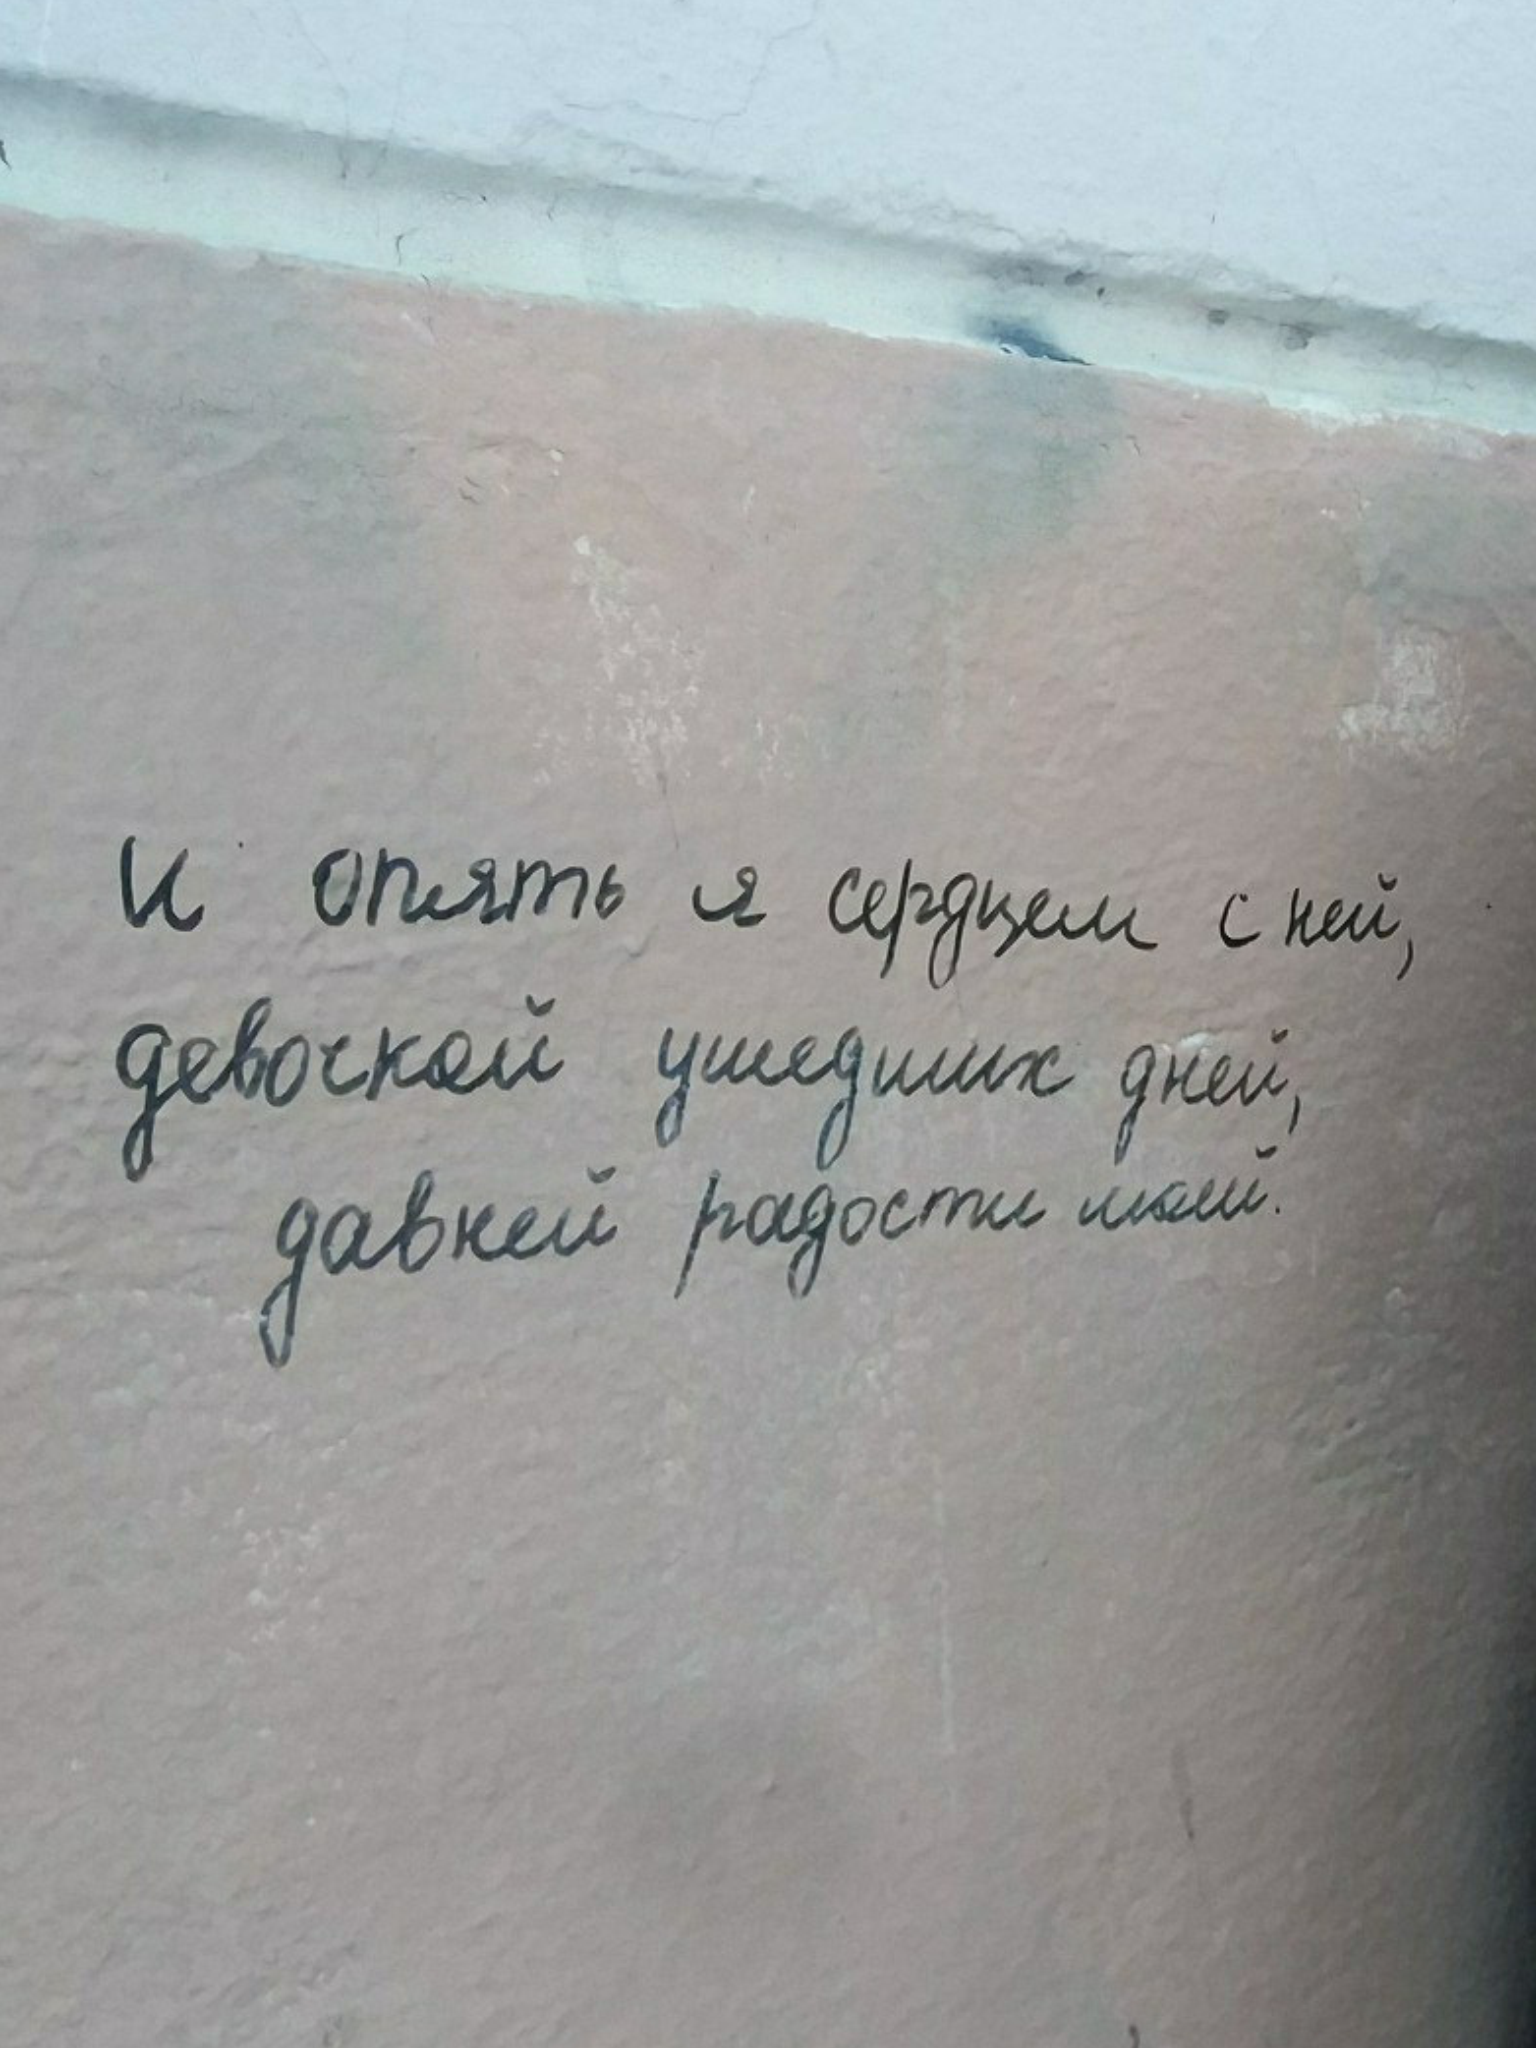 И опять я сердцем с ней,
девочкой ушедших дней,
давней радости моей.